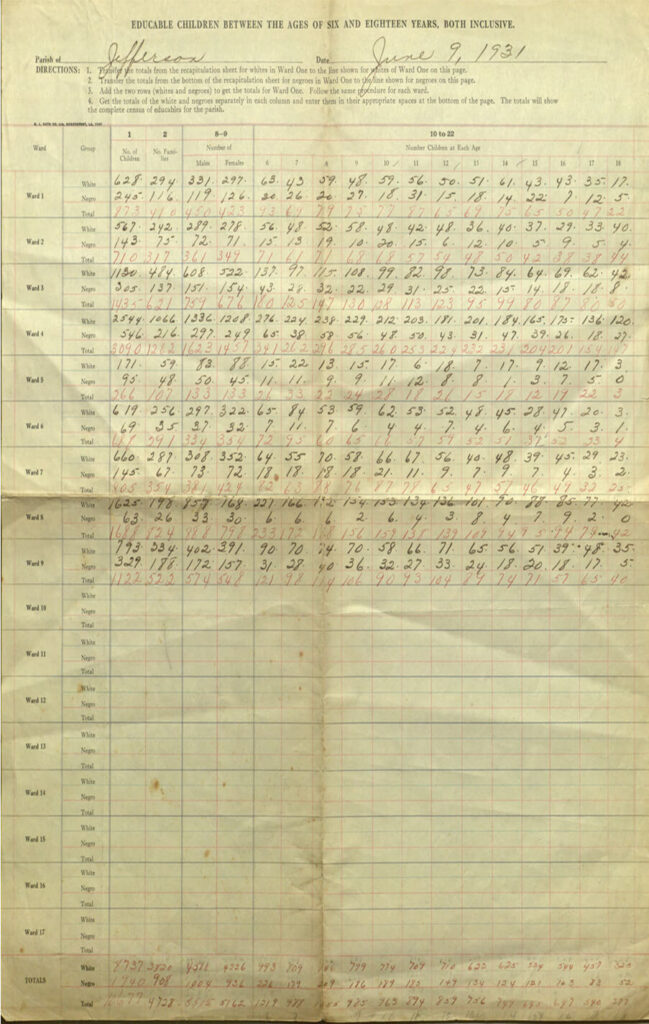 EDUCABLE CHILDREN BETWEEN THE AGES OF SIX AND EIGHTEEN YEARS, BOTH INCLUSIVE.
Parish of Jefferson Date June 9, 1931
DIRECTIONS: 1. Transfer the totals from the recapitulation sheet for whites in Ward One to the line shown for whites of Ward One on this page.
2. Transfer the totals from the bottom of the recapitulation sheet for negroes in Ward One to the line shown for negroes on this page.
3. Add the two rows (whites and negroes) to get the totals for Ward One. Follow the same procedure for each ward.
4. Get the totals of the white and negroes separately in each column and enter them in their appropriate spaces at the bottom of the page. The totals will show
the complete census of educables for the parish.
1 2 8-9 10 to 22
Ward Group No. of Children No. Families Number of Number Children at Each Age
Males Females 6 7 8 9 10 11 12 13 14 15 16 17 18
White 628 294 331 297 63 43 59 48 59 56 50 51 61 43 43 35 17
Ward 1 Negro 245 116 119 126 30 26 20 27 18 31 15 18 14 22 7 12 5
Total 873 410 450 423
White 567 242 289 278 56 48 52 58 48 42 48 36 40 37 29 33 40
Ward 2 Negro 143 75 72 71 15 13 19 10 20 15 6 12 10 5 9 5 4
Total 710 317 361 349 71 61 71 68 68 57 54 48 50 42 38 38 44
White 1130 484 608 522 137 97 115 108 99 82 98 73 84 64 69 62 42
Ward 3 Negro 305 137 151 154 43 28 32 22 29 31 25 22 15 14 18 18 8
Total 1435 621 759 676 180 125 147 130 128 113 123 95 99 80 50
White 2544 1066 1336 1208 276 224 238 229 212 203 181 201 184 165 175 136 120
Ward 4 Negro 546 216 297 249 65 38 58 56 48 50 43 31 47 39 26 18 27
Total 3090 1282 1457 341 262 296 285 260 253 224 232 231 204 201 154
White 171 59 83 88 15 22 13 15 17 6 18 7 17 9 12 17 3
Ward 5 Negro 95 48 50 45 11 11 9 9 11 12 8 8 1 3 7 5 0
Total 266 107 133 133 22 24 28 18 26 15 18 12 19 22 3
White 619 256 297 322 65 84 53 59 62 53 52 48 45 28 47 20 3
Ward 6 Negro 69 35 37 32 7 11 7 6 4 4 7 4 6 4 5 3 1
Total 688 291 334 354 72 95 60 65 57 59 52 52 23 4
White 660 287 308 352 64 55 70 58 66 67 56 40 48 39 45 29 23
Ward 7 Negro 145 67 73 72 18 18 18 18 21 11 9 7 9 7 4 3 2
Total 805 354
White 1625 198 857 768 221 166 154 153 134 136 101 90 88 85 77 42
Ward 8 Negro 63 26 33 30 6 6 6 2 6 4 3 8 4 7 9 2 0
Total
White 793 334 402 391 90 70 74 70 58 66 71 65 56 51 39 48 35
Ward 9 Negro 329 188 172 157 31 28 40 36 32 27 33 24 18 20 18 17 5
Total 1122 522 574 548 121 98 114 106 90 93 104 89 74 71 57 65 40
White
Ward 10 Negro
Total
White
Ward 11 Negro
Total
White
Ward 12 Negro
Total
White
Ward 13 Negro
Total
White
Ward 14 Negro
Total
White
Ward 15 Negro
Total
White
Ward 16 Negro
Total
White
Ward 17 Negro
Total
White 8737 3820
TOTALS Negro 1940 908 1004 936
Total 4728 5162